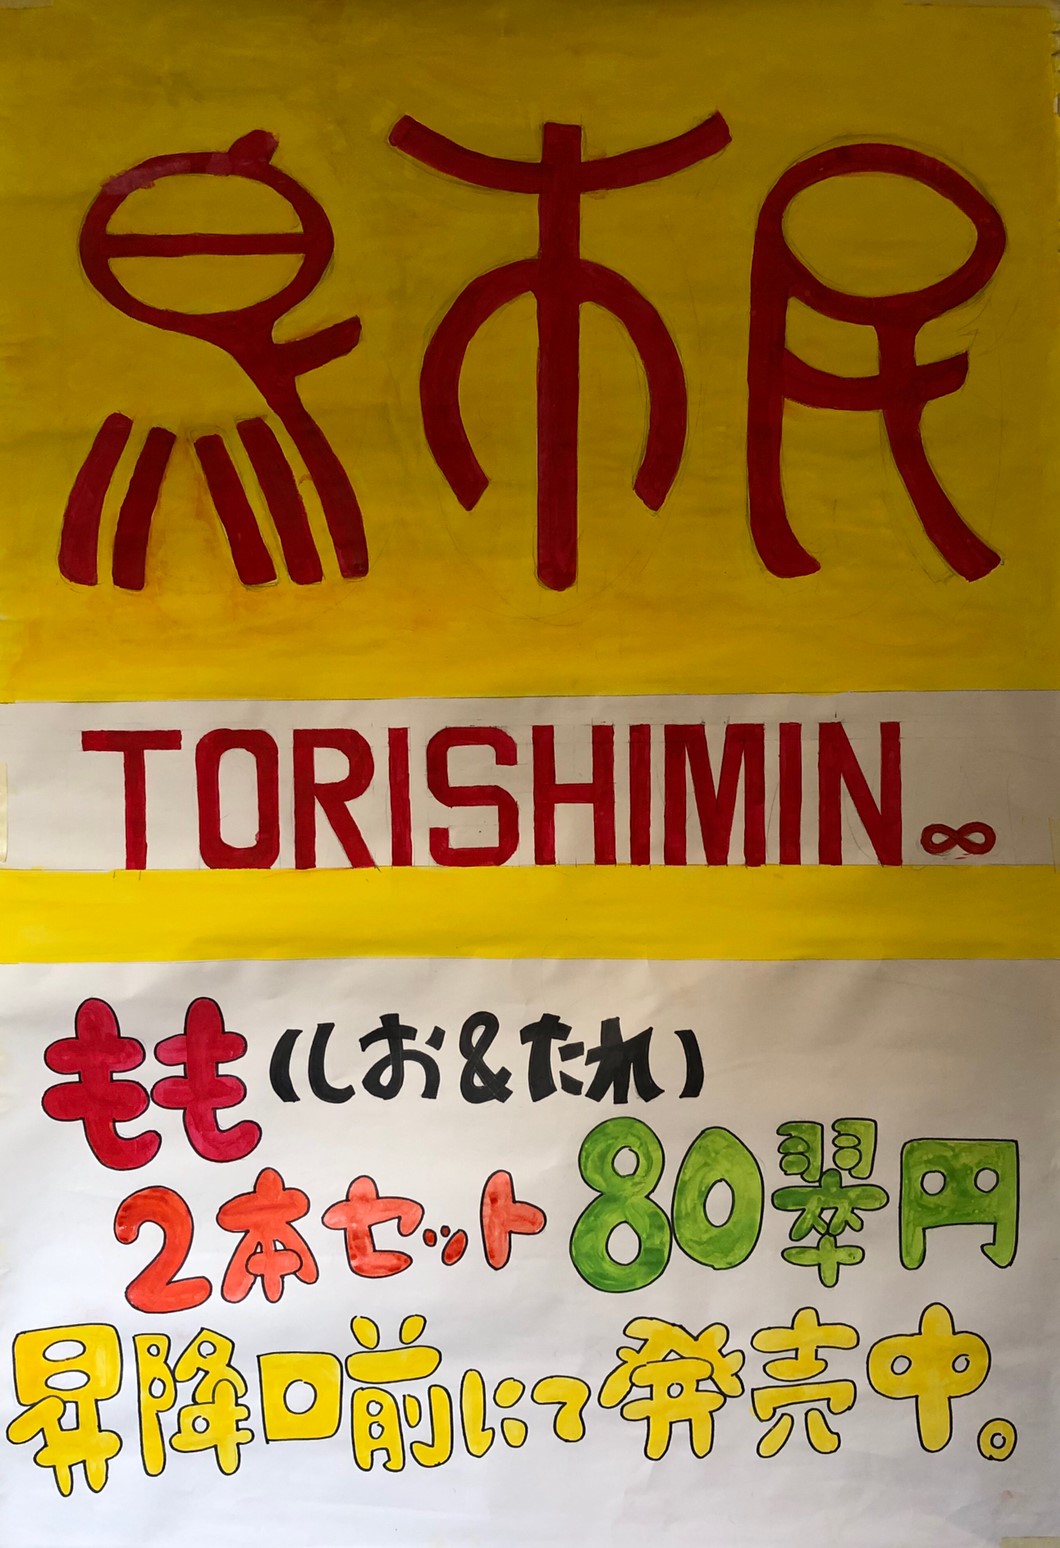 鳥市民
TORISHIMIN∞
もも(しお&たれ)
2本セット 80翠円
昇降口前にて発売中。